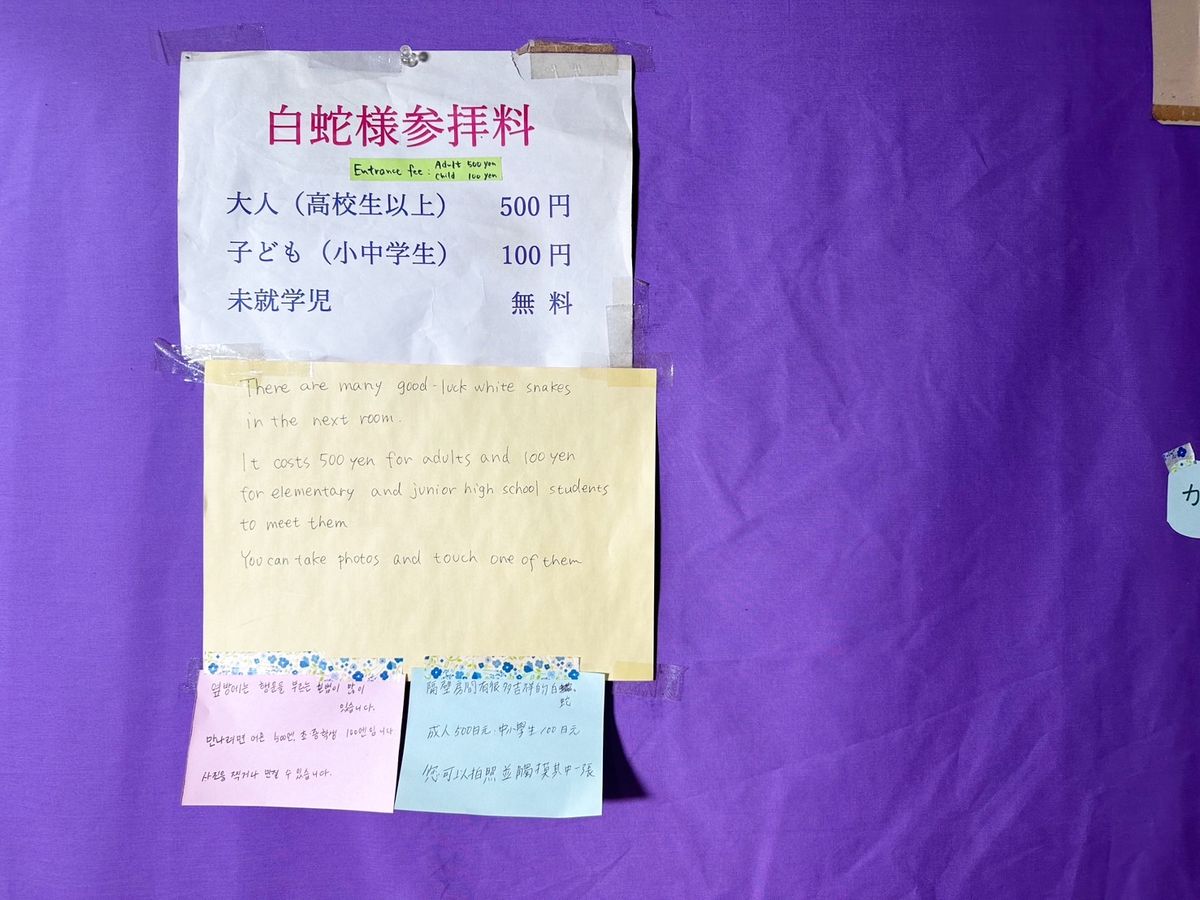 白蛇様参拝料
Entrance fee : Adult 500 yen
Child 100 yen
大人（高校生以上） 500円
子ども（小中学生） 100円
未就学児 無料
There are many good-luck white snakes
in the next room.
It costs 500 yen for adults and 100 yen
for elementary and junior high school students
to meet them
You can take photos and touch one of them
옆방에는 행운을 부르는 흰뱀이 많이
있습니다.
만나려면 어른 500엔, 초 중학생 100엔입니다
사진을 찍거나 만질 수 있습니다.
隔壁房間有很多吉祥的白蛇。
成人500日元·中小學生100日元
您可以拍照並觸摸其中一張
カ